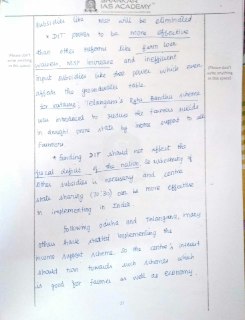 SHANKAR
IAS ACADEMY
(Please don't
write anything
in this space)
(Please don't
write anything
in this space)
subsidies like MSP will be eliminated
* DIT proves to be more effective
than other reforms like Farm loan
waiver, MSP increases and inefficient
input subsidies like free power which even
affects the groundwater table.
for example, Telangana's Rythu Bandhu scheme
was introduced to reduce the farmers suicide
in drought prone state by income support to all
farmers.
* Funding DIT should not affect the
fiscal deficit of the nation so warranty of
other subsidies is necessary and centre
state sharing (70:30) can be more effective
in implementing in India
Following Odisha and Telangana, many
others have started implementing the
income support scheme. so the centre's
should turn towards such schemes which
is good for farmer as well as economy.